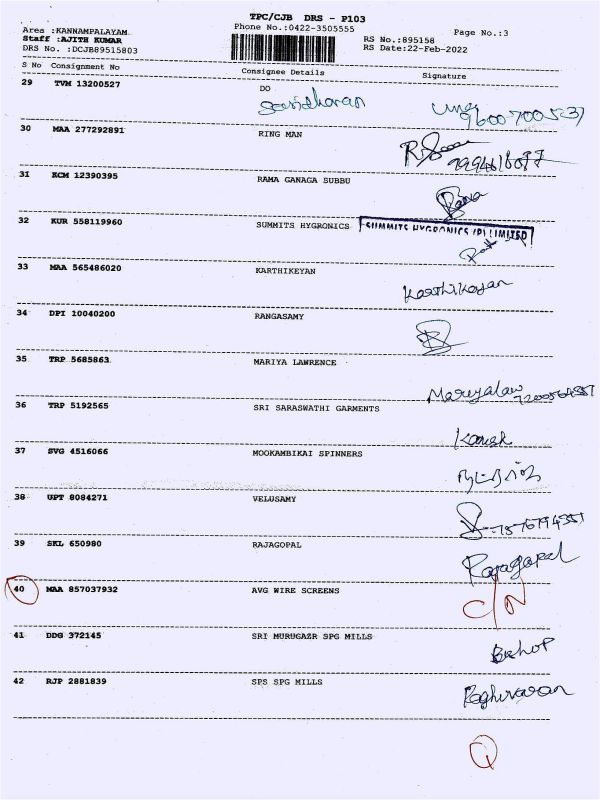 TPC/CJB DRS - P103
Area :KANNAMPALAYAM
Phone No.:0422-3505555
Page No.:3
Staff :AJITH KUMAR
RS No.:895158
DRS No. :DCJB89515803
RS Date:22-Feb-2022
S No Consignment No Consignee Details Signature
29 TVM 13200527 DO
Sasidharan
30 MAA 277292891 RING MAN
31 KCM 12390395 RAMA GANAGA SUBBU
Rama
32 KUR 558119960 SUMMITS HYGRONICS SUMMITS HYGRONICS (P) LIMITED
33 MAA 565486020 KARTHIKEYAN
Karthikeyan
34 DPI 10040200 RANGASAMY
35 TRP 5685863 MARIYA LAWRENCE
36 TRP 5192565 SRI SARASWATHI GARMENTS
37 SVG 4516066 MOOKAMBIKAI SPINNERS
38 UPT 8084271 VELUSAMY
39 SKL 650980 RAJAGOPAL
Rajagopal
40 MAA 857037932 AVG WIRE SCREENS
C/N
41 DDG 372145 SRI MURUGAZR SPG MILLS
42 RJP 2881839 SPS SPG MILLS
Raghuvaran
Q